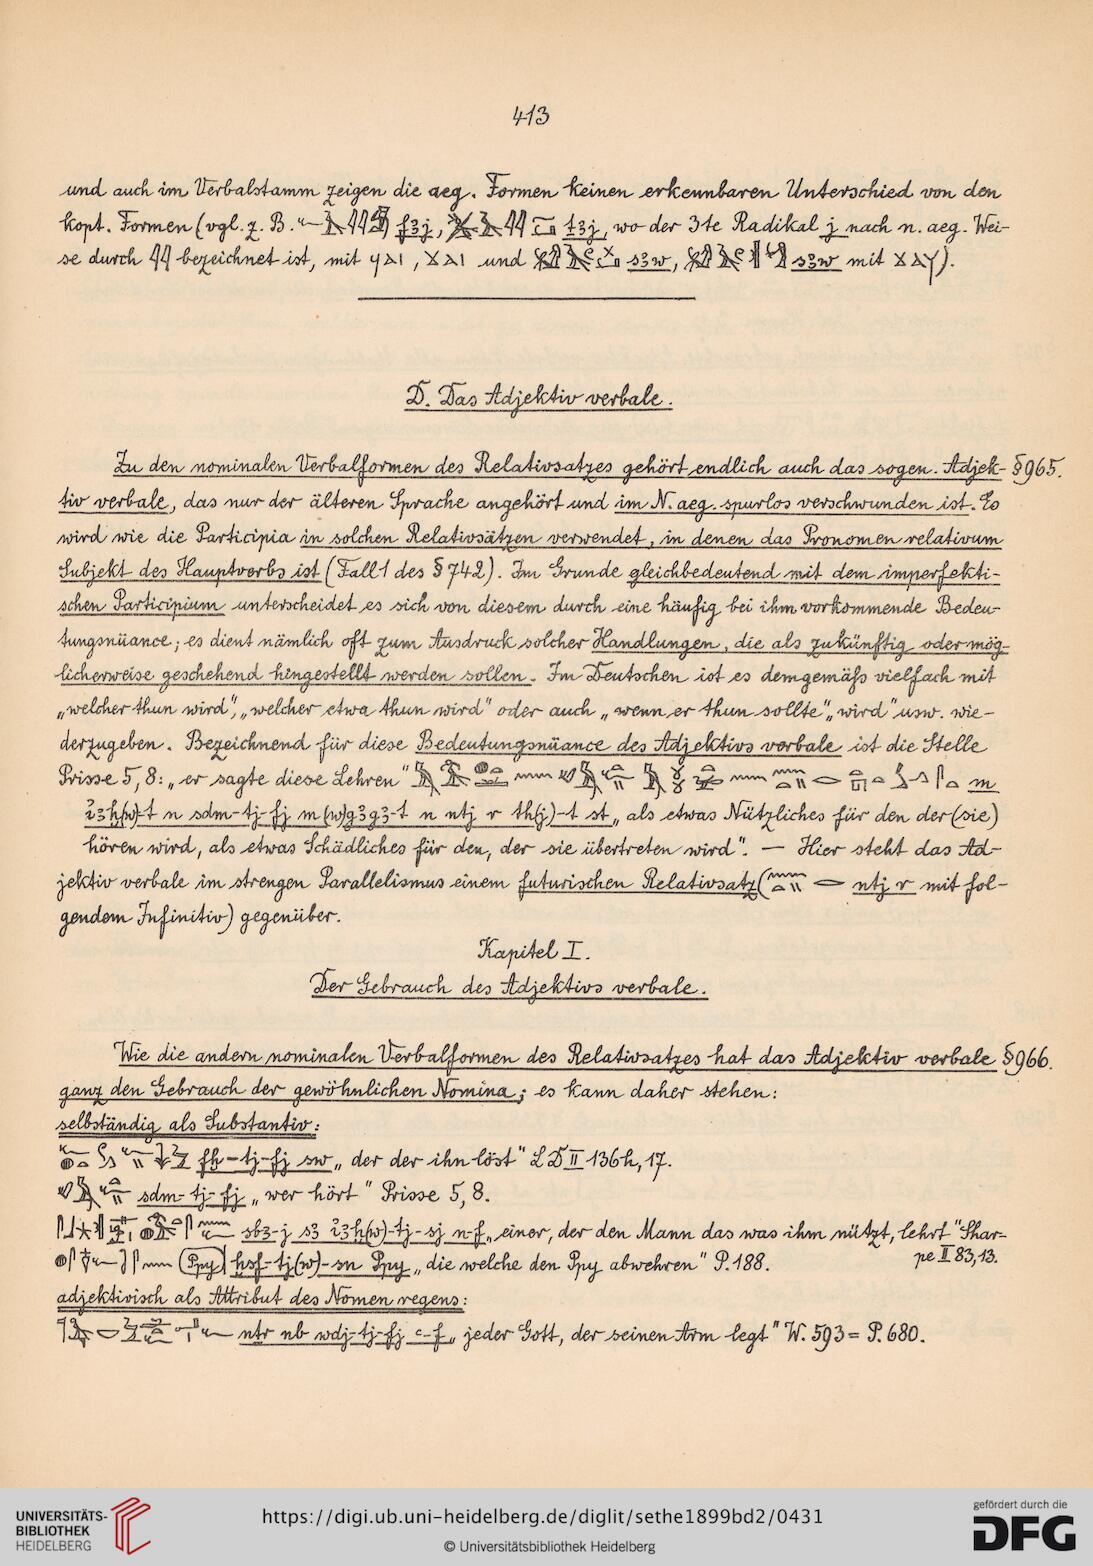 413
und auch im Verbalstamm zeigen die aeg. Formen keinen erkennbaren Unterschied von den
kopt. Formen (vgl. z. B. f3j, t3j, wo der 3te Radikal j nach n. aeg. Wei-
se durch 𓇋𓇋 bezeichnet ist, mit ϥⲁⲓ, ϫⲁⲓ und s3w, s3w mit
D. Das Adjektiv verbale.
Zu den nominalen Verbalformen des Relativsatzes gehört endlich auch das sogen. Adjek- §965.
tiv verbale, das nur der älteren Sprache angehört und im N. aeg. spurlos verschwunden ist. Es
wird wie die Participia in solchen Relativsätzen verwendet, in denen das Pronomen relativum
Subjekt des Hauptverbs ist (Fall 1 des § 742). Im Grunde gleichbedeutend mit dem imperfekti-
schen Participium unterscheidet es sich von diesem durch eine häufig bei ihm vorkommende Bedeu-
tungsnüance; es dient nämlich oft zum Ausdruck solcher Handlungen, die als zukünftig oder mög-
licherweise geschehend hingestellt werden sollen. Im Deutschen ist es demgemäfs vielfach mit
„welcher thun wird", „welcher etwa thun wird" oder auch „wenn er thun sollte" „wird" usw. wie-
derzugeben. Bezeichnend für diese Bedeutungsnüance des Adjektivs verbale ist die Stelle
Prisse 5, 8: „er sagte diese Lehren" m
i3ḫ(w)-t n sdm-tj-fj m (w)g3g3-t n ntj r th(j)-t st „als etwas Nützliches für den der (sie)
hören wird, als etwas Schädliches für den, der sie übertreten wird". — Hier steht das Ad-
jektiv verbale im strengen Parallelismus einem futurischen Relativsatz ( ntj r mit fol-
gendem Infinitiv) gegenüber.
Kapitel I.
Der Gebrauch des Adjektivs verbale.
Wie die andern nominalen Verbalformen des Relativsatzes hat das Adjektiv verbale §966.
ganz den Gebrauch der gewöhnlichen Nomina; es kann daher stehen:
selbständig als Substantiv:
fḫ-tj-fj sw „der der ihn löst" LD II 136h, 17.
sdm-tj-fj „wer hört" Prisse 5, 8.
sb3-j s3 i3ḫ(w)-tj-sj n-f „einer, der den Mann das was ihm nützt, lehrt" Shar-
pe II 83, 13.
(Ppy) ḫsf-tj(w)-sn Ppy „die welche den Ppy abwehren" P. 188.
adjektivisch als Attribut des Nomen regens:
ntr nb wdj-tj-fj ꜥ-f „jeder Gott, der seinen Arm legt" W. 593 = P. 680.
UNIVERSITÄTS-
BIBLIOTHEK
HEIDELBERG
https://digi.ub.uni-heidelberg.de/diglit/sethe1899bd2/0431
© Universitätsbibliothek Heidelberg
gefördert durch die
DFG